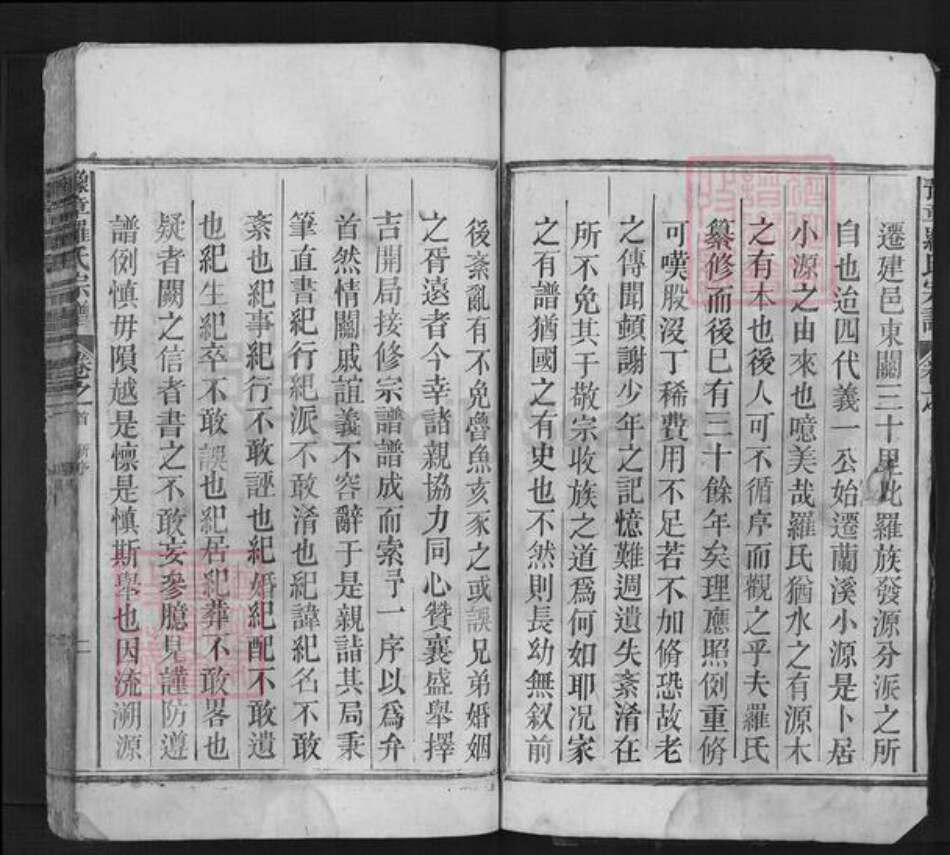 遷建邑東關三十里此羅族發源分派之所
自也迨四代義一公始遷蘭溪小源是卜居
小源之由來也噫美哉羅氏猶水之有源木
之有本也後人可不循序而觀之乎夫羅氏
纂修而後已有三十餘年矣理應照例重脩
可嘆殷沒丁稀費用不足若不加脩恐故老
之傳聞頓謝少年之記憶難週遺失紊淆在
所不免其于敬宗收族之道爲何如耶况家
之有譜猶國之有史也不然則長幼無叙前
後紊亂有不免魯魚亥豕之或誤兄弟婚姻
之胥遠者今幸諸親協力同心贊襄盛舉擇
古開局接修宗譜譜成而索予一序以爲弁
首然情關戚誼義不容辭于是親詣其局秉
筆直書紀行紀派不敢淆也紀諱紀名不敢
紊也紀事紀行不敢誣也紀婚紀配不敢遺
也紀生紀卒不敢誤也紀居紀葬不敢畧也
疑者闕之信者書之不敢妄參臆見謹防遵
譜例慎毋隕越是懍是慎斯舉也因流溯源
豫章羅氏宗譜 卷之首 新序 二